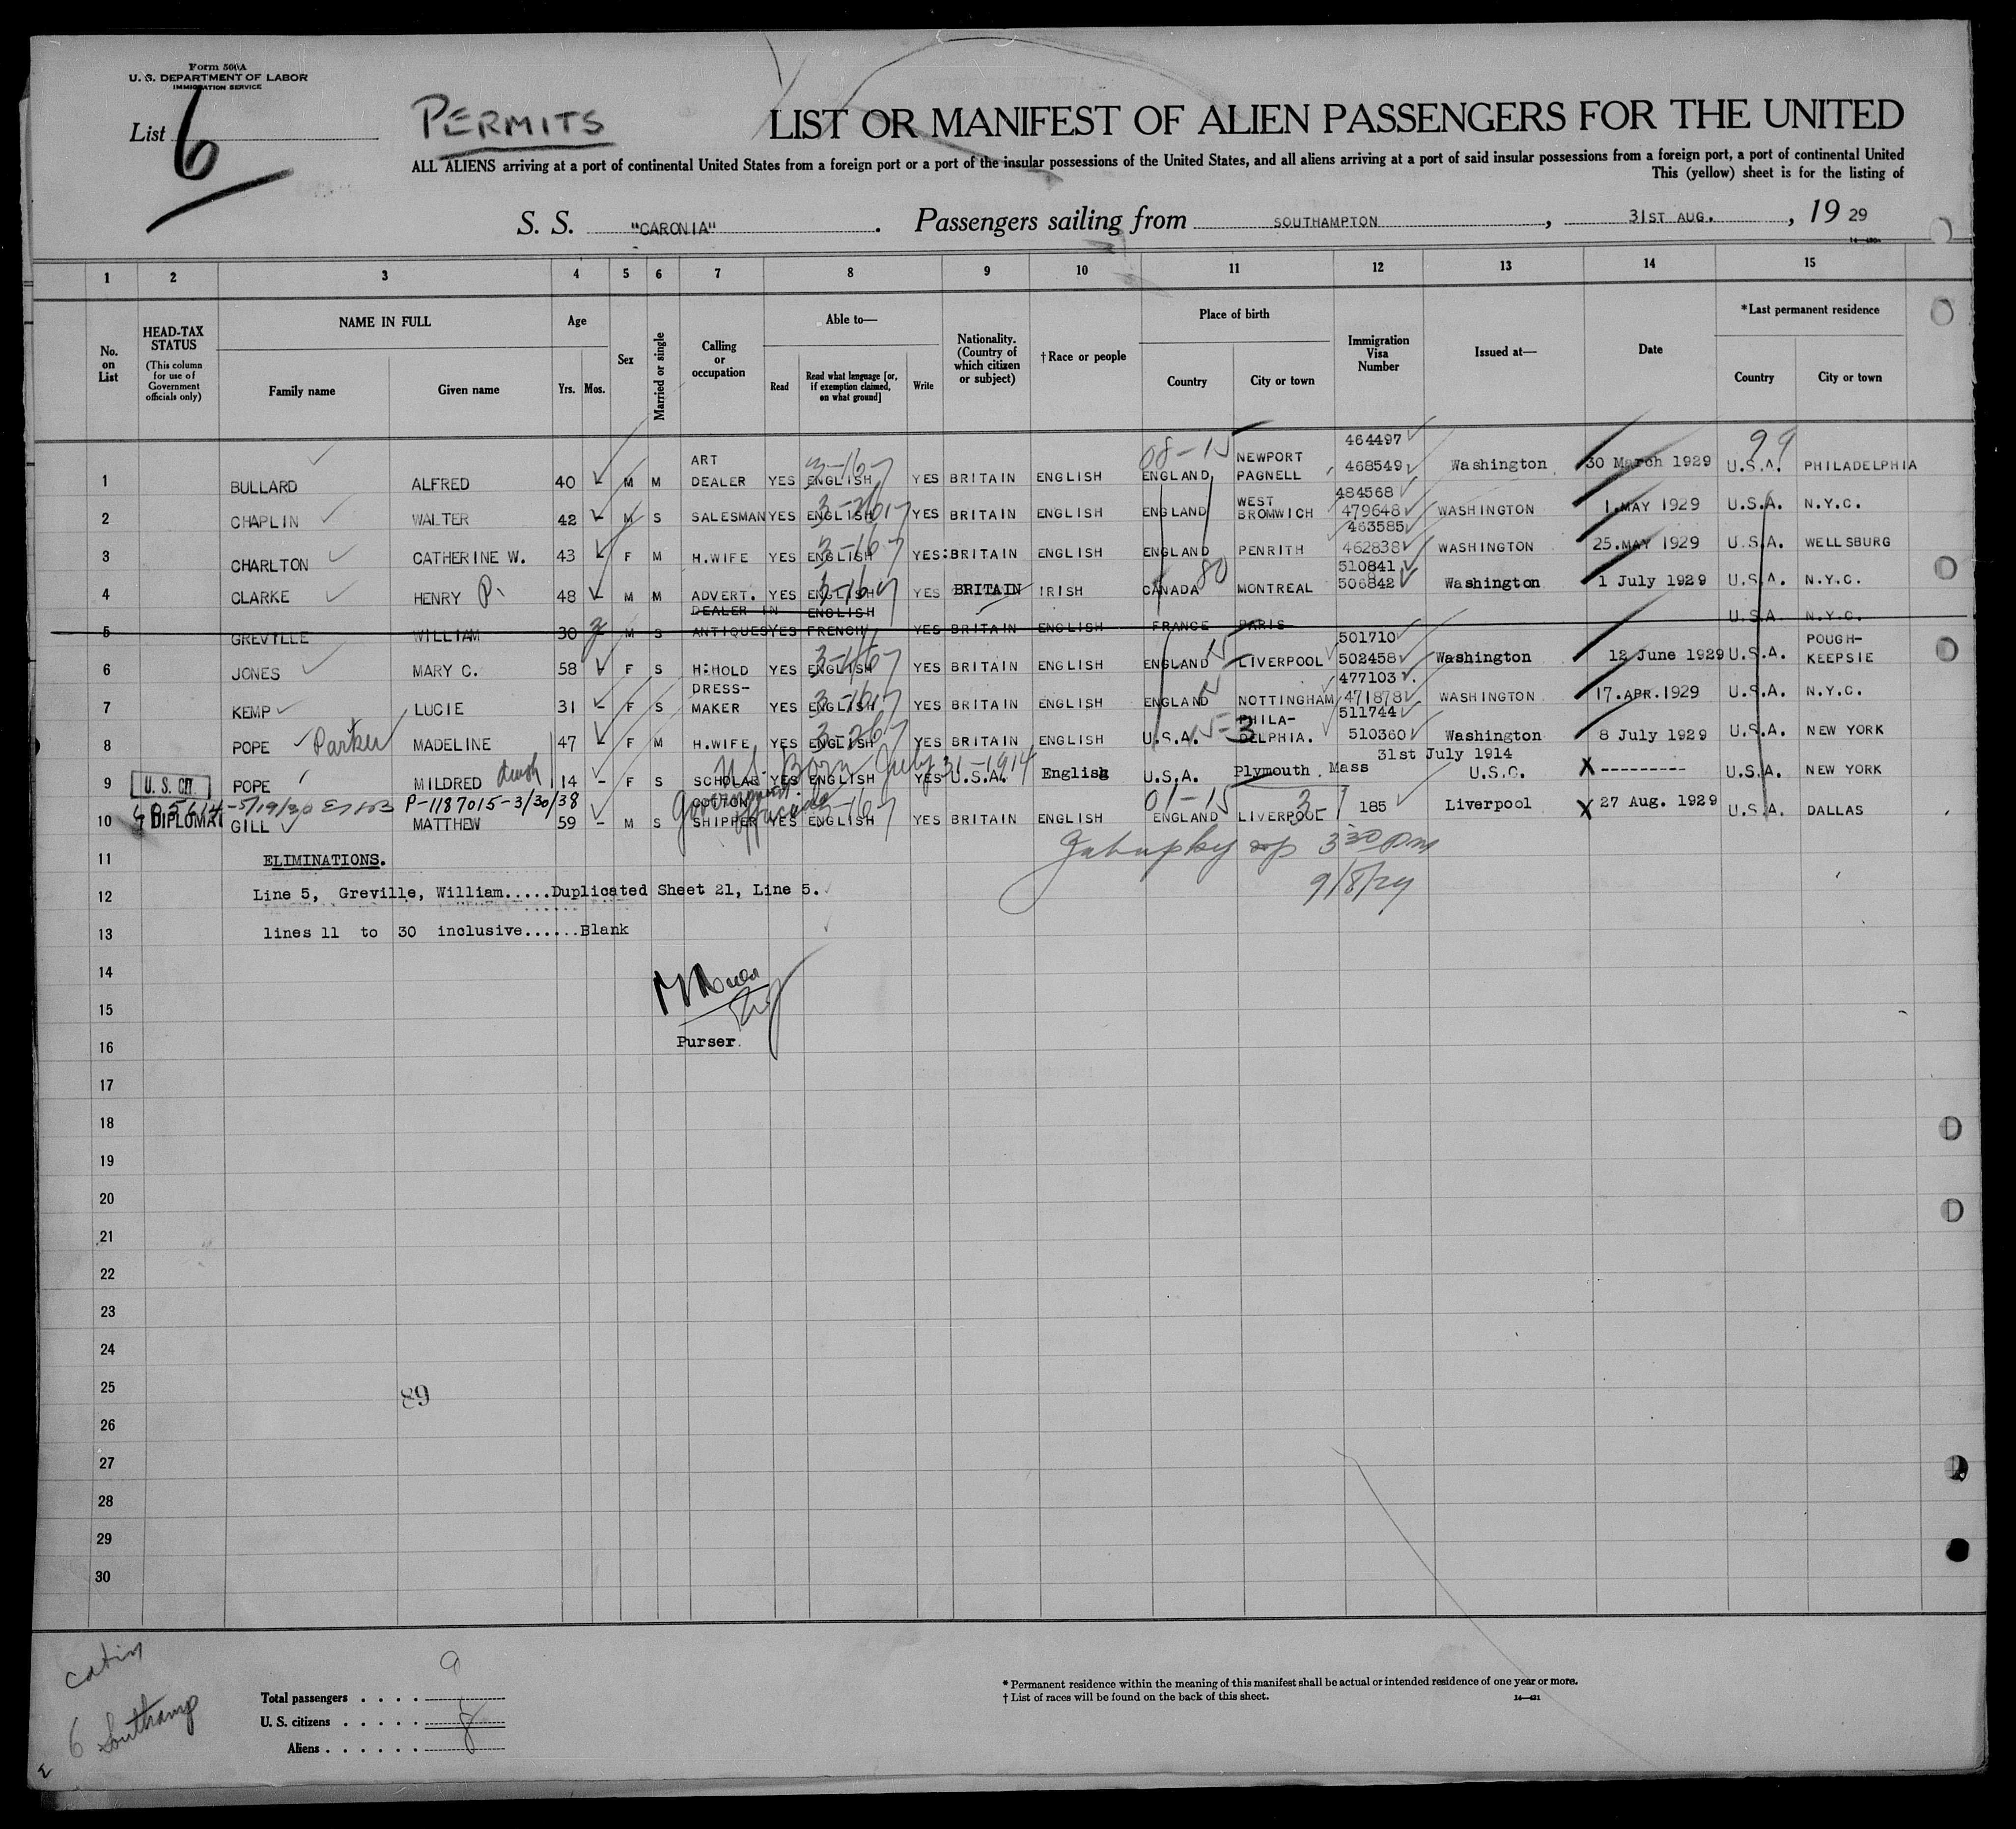 Form 500A
U. S. DEPARTMENT OF LABOR
IMMIGRATION SERVICE
List 6
PERMITS
LIST OR MANIFEST OF ALIEN PASSENGERS FOR THE UNITED
ALL ALIENS arriving at a port of continental United States from a foreign port or a port of the insular possessions of the United States, and all aliens arriving at a port of said insular possessions from a foreign port, a port of continental United
This (yellow) sheet is for the listing of
S. S. "CARONIA". Passengers sailing from SOUTHAMPTON, 31ST AUG., 19 29
1 2 3 4 5 6 7 8 9 10 11 12 13 14 15
No. on List
HEAD-TAX STATUS (This column for use of Government officials only)
NAME IN FULL Family name Given name
Age Yrs. Mos.
Sex
Married or single
Calling or occupation
Able to— Read Read what language [or, if exemption claimed, on what ground] Write
Nationality. (Country of which citizen or subject)
†Race or people
Place of birth Country City or town
Immigration Visa Number
Issued at—
Date
*Last permanent residence Country City or town
1 BULLARD ALFRED 40 M M ART DEALER YES ENGLISH YES BRITAIN ENGLISH ENGLAND NEWPORT PAGNELL 464497 468549 Washington 30 March 1929 U.S.A. PHILADELPHIA
2 CHAPLIN WALTER 42 - M S SALESMAN YES ENGLISH YES BRITAIN ENGLISH ENGLAND WEST BROMWICH 484568 479648 WASHINGTON 1.MAY 1929 U.S.A. N.Y.C.
3 CHARLTON CATHERINE W. 43 F M H.WIFE YES ENGLISH YES: BRITAIN ENGLISH ENGLAND PENRITH 463585 462838 WASHINGTON 25.MAY 1929 U.S.A. WELLSBURG
4 CLARKE HENRY P. 48 M M ADVERT. YES ENGLISH YES BRITAIN IRISH CANADA 80 MONTREAL 510841 506842 Washington 1 July 1929 U.S.A. N.Y.C.
5 GREVILLE WILLIAM 30 M S DEALER IN ANTIQUES YES ENGLISH FRENCH YES BRITAIN ENGLISH FRANCE PARIS U.S.A. N.Y.C.
6 JONES MARY C. 58 F S H:HOLD YES ENGLISH YES BRITAIN ENGLISH ENGLAND LIVERPOOL 501710 502458 Washington 12 June 1929 U.S.A. POUGH-KEEPSIE
7 KEMP LUCIE 31 - F S DRESS-MAKER YES ENGLISH YES BRITAIN ENGLISH ENGLAND NOTTINGHAM 477103 471878 WASHINGTON 17.APR.1929 U.S.A. N.Y.C.
8 POPE Parker MADELINE 47 F M H.WIFE YES ENGLISH YES BRITAIN ENGLISH U.S.A. PHILA-DELPHIA. 511744 510360 Washington 8 July 1929 U.S.A. NEW YORK
U.S. Born July 31-1914
9 U. S. CIT. POPE MILDRED 14 - F S SCHOLAR YES ENGLISH YES U.S.A. English U.S.A. Plymouth Mass 31st July 1914 U.S.C. X --------- U.S.A. NEW YORK
P-1187015-3/30/38
10 DIPLOMAT GILL MATTHEW 59 - M S COTTON SHIPPER Government official YES ENGLISH YES BRITAIN ENGLISH ENGLAND LIVERPOOL 185 Liverpool X 27 Aug. 1929 U.S.A. DALLAS
3 30 pm
9/8/29
11 ELIMINATIONS.
12 Line 5, Greville, William.....Duplicated Sheet 21, Line 5.
13 lines 11 to 30 inclusive......Blank
14
15
16 Purser.
17
18
19
20
21
22
23
24
25
89
26
27
28
29
30
cabin
6 Southamp
Total passengers . . . . 9
U. S. citizens . . . . .
Aliens . . . . . . 8
* Permanent residence within the meaning of this manifest shall be actual or intended residence of one year or more.
† List of races will be found on the back of this sheet.
14—421